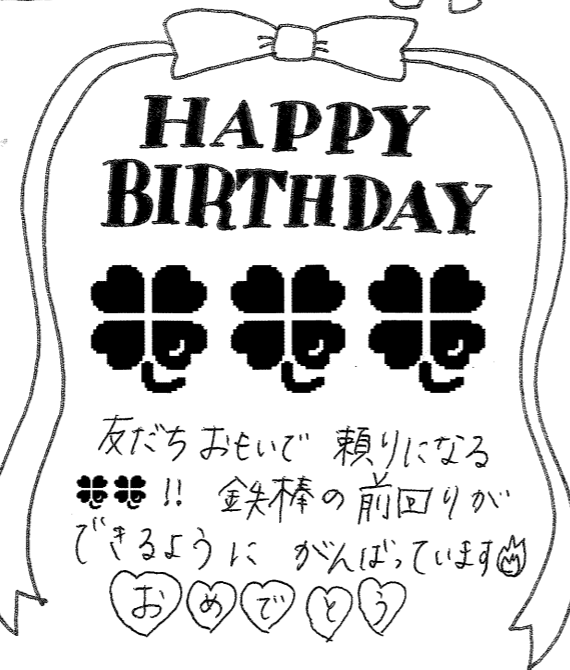 HAPPY
BIRTHDAY
🍀🍀🍀
友だちおもいで 頼りになる
🍀🍀!! 鉄棒の前回りが
できるように がんばっています🔥
おめでとう